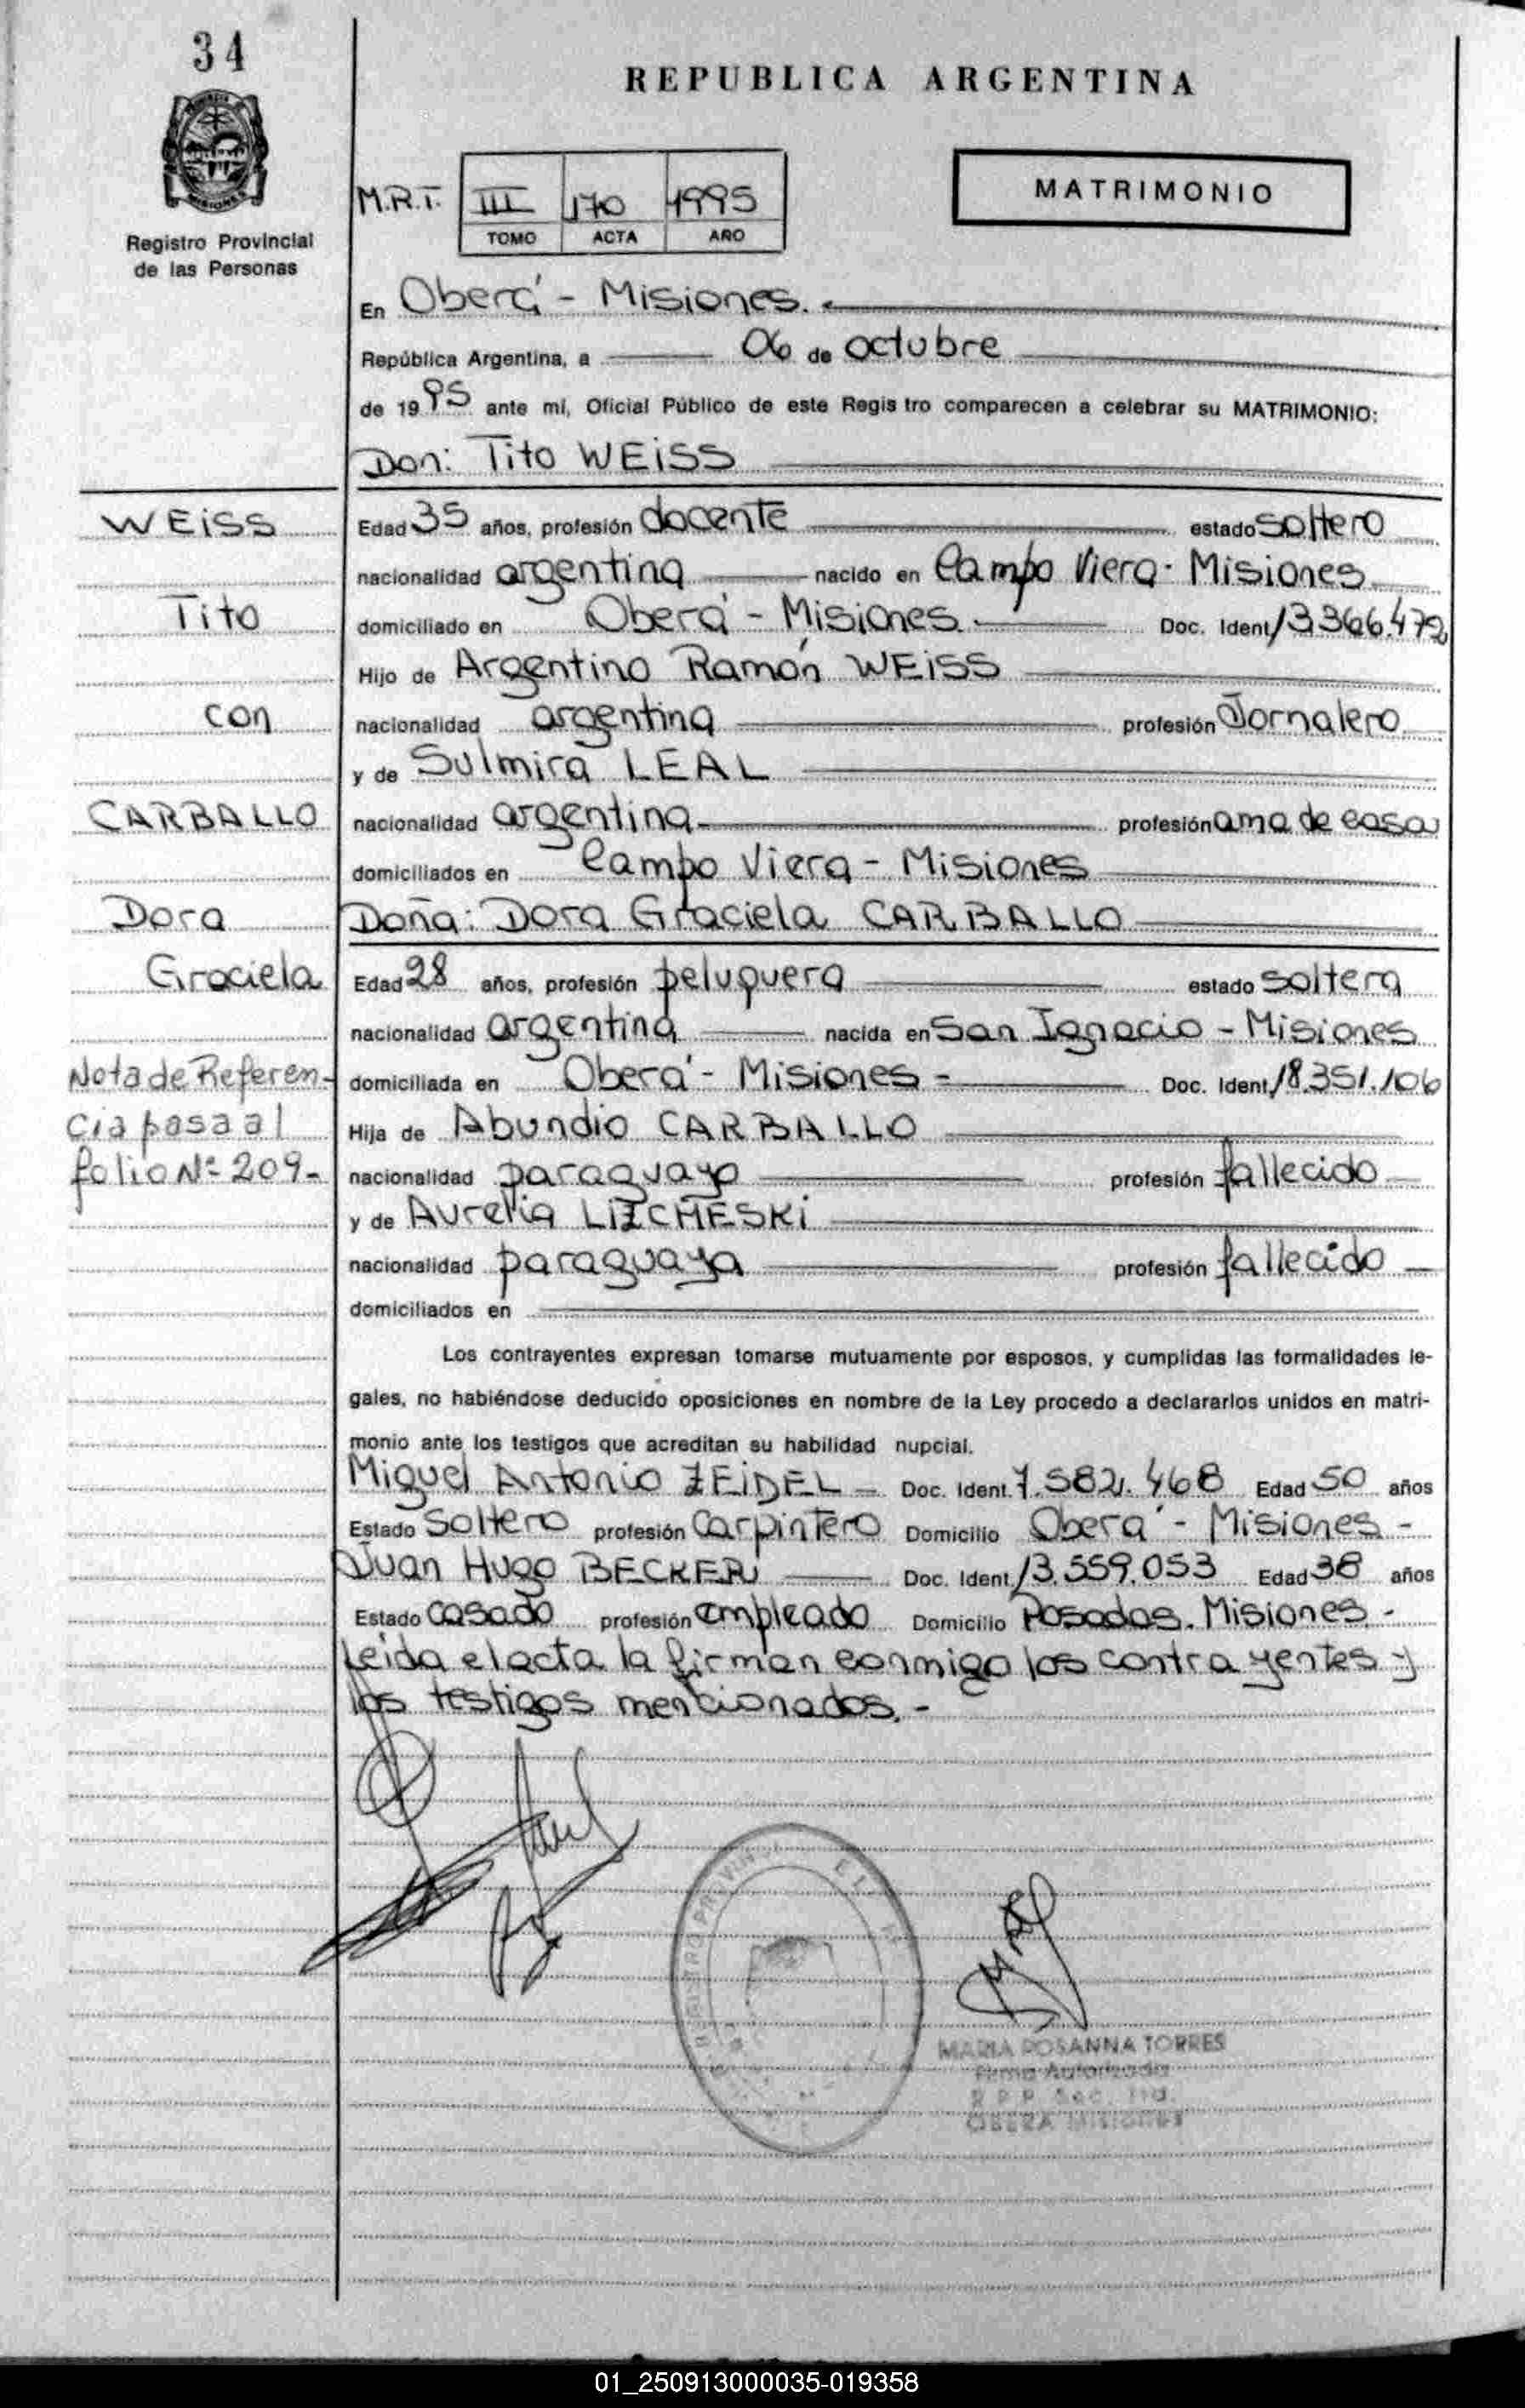 34
REPUBLICA ARGENTINA
MATRIMONIO
M.R.T. III 170 1995
TOMO ACTA AÑO
Registro Provincial
de las Personas
En Oberá - Misiones.
República Argentina, a 06 de octubre
de 1995 ante mí, Oficial Público de este Regis tro comparecen a celebrar su MATRIMONIO:
Don: Tito WEISS
WEISS
Tito
con
CARBALLO
Dora
Graciela
Nota de Referen-
cia pasa al
folio Nº 209-
Edad 35 años, profesión docente estado soltero
nacionalidad argentina nacido en Campo Viera - Misiones
domiciliado en Oberá - Misiones. Doc. Ident. 13.366.472
Hijo de Argentino Ramón WEISS
nacionalidad argentina profesión Jornalero
y de Sulmira LEAL
nacionalidad argentina profesión ama de casa
domiciliados en Campo Viera - Misiones
Doña: Dora Graciela CARBALLO
Edad 28 años, profesión peluquera estado soltera
nacionalidad argentina nacida en San Ignacio - Misiones
domiciliada en Oberá - Misiones - Doc. Ident. 18.351.106
Hija de Abundio CARBALLO
nacionalidad paraguayo profesión fallecido
y de Aurelia LIZCHESKI
nacionalidad paraguaya profesión fallecido
domiciliados en
Los contrayentes expresan tomarse mutuamente por esposos, y cumplidas las formalidades le-
gales, no habiéndose deducido oposiciones en nombre de la Ley procedo a declararlos unidos en matri-
monio ante los testigos que acreditan su habilidad nupcial.
Miguel Antonio ZEIDEL - Doc. Ident. 7.582.468 Edad 50 años
Estado Soltero profesión Carpintero Domicilio Oberá - Misiones -
Juan Hugo BECKER Doc. Ident. 13.559.053 Edad 38 años
Estado Casado profesión empleado Domicilio Posadas. Misiones -
Leida el acta la firman conmigo los contrayentes y
los testigos mencionados. -
MARIA ROSANNA TORRES
Firma Autorizada
OBERA MISIONES
01_250913000035-019358